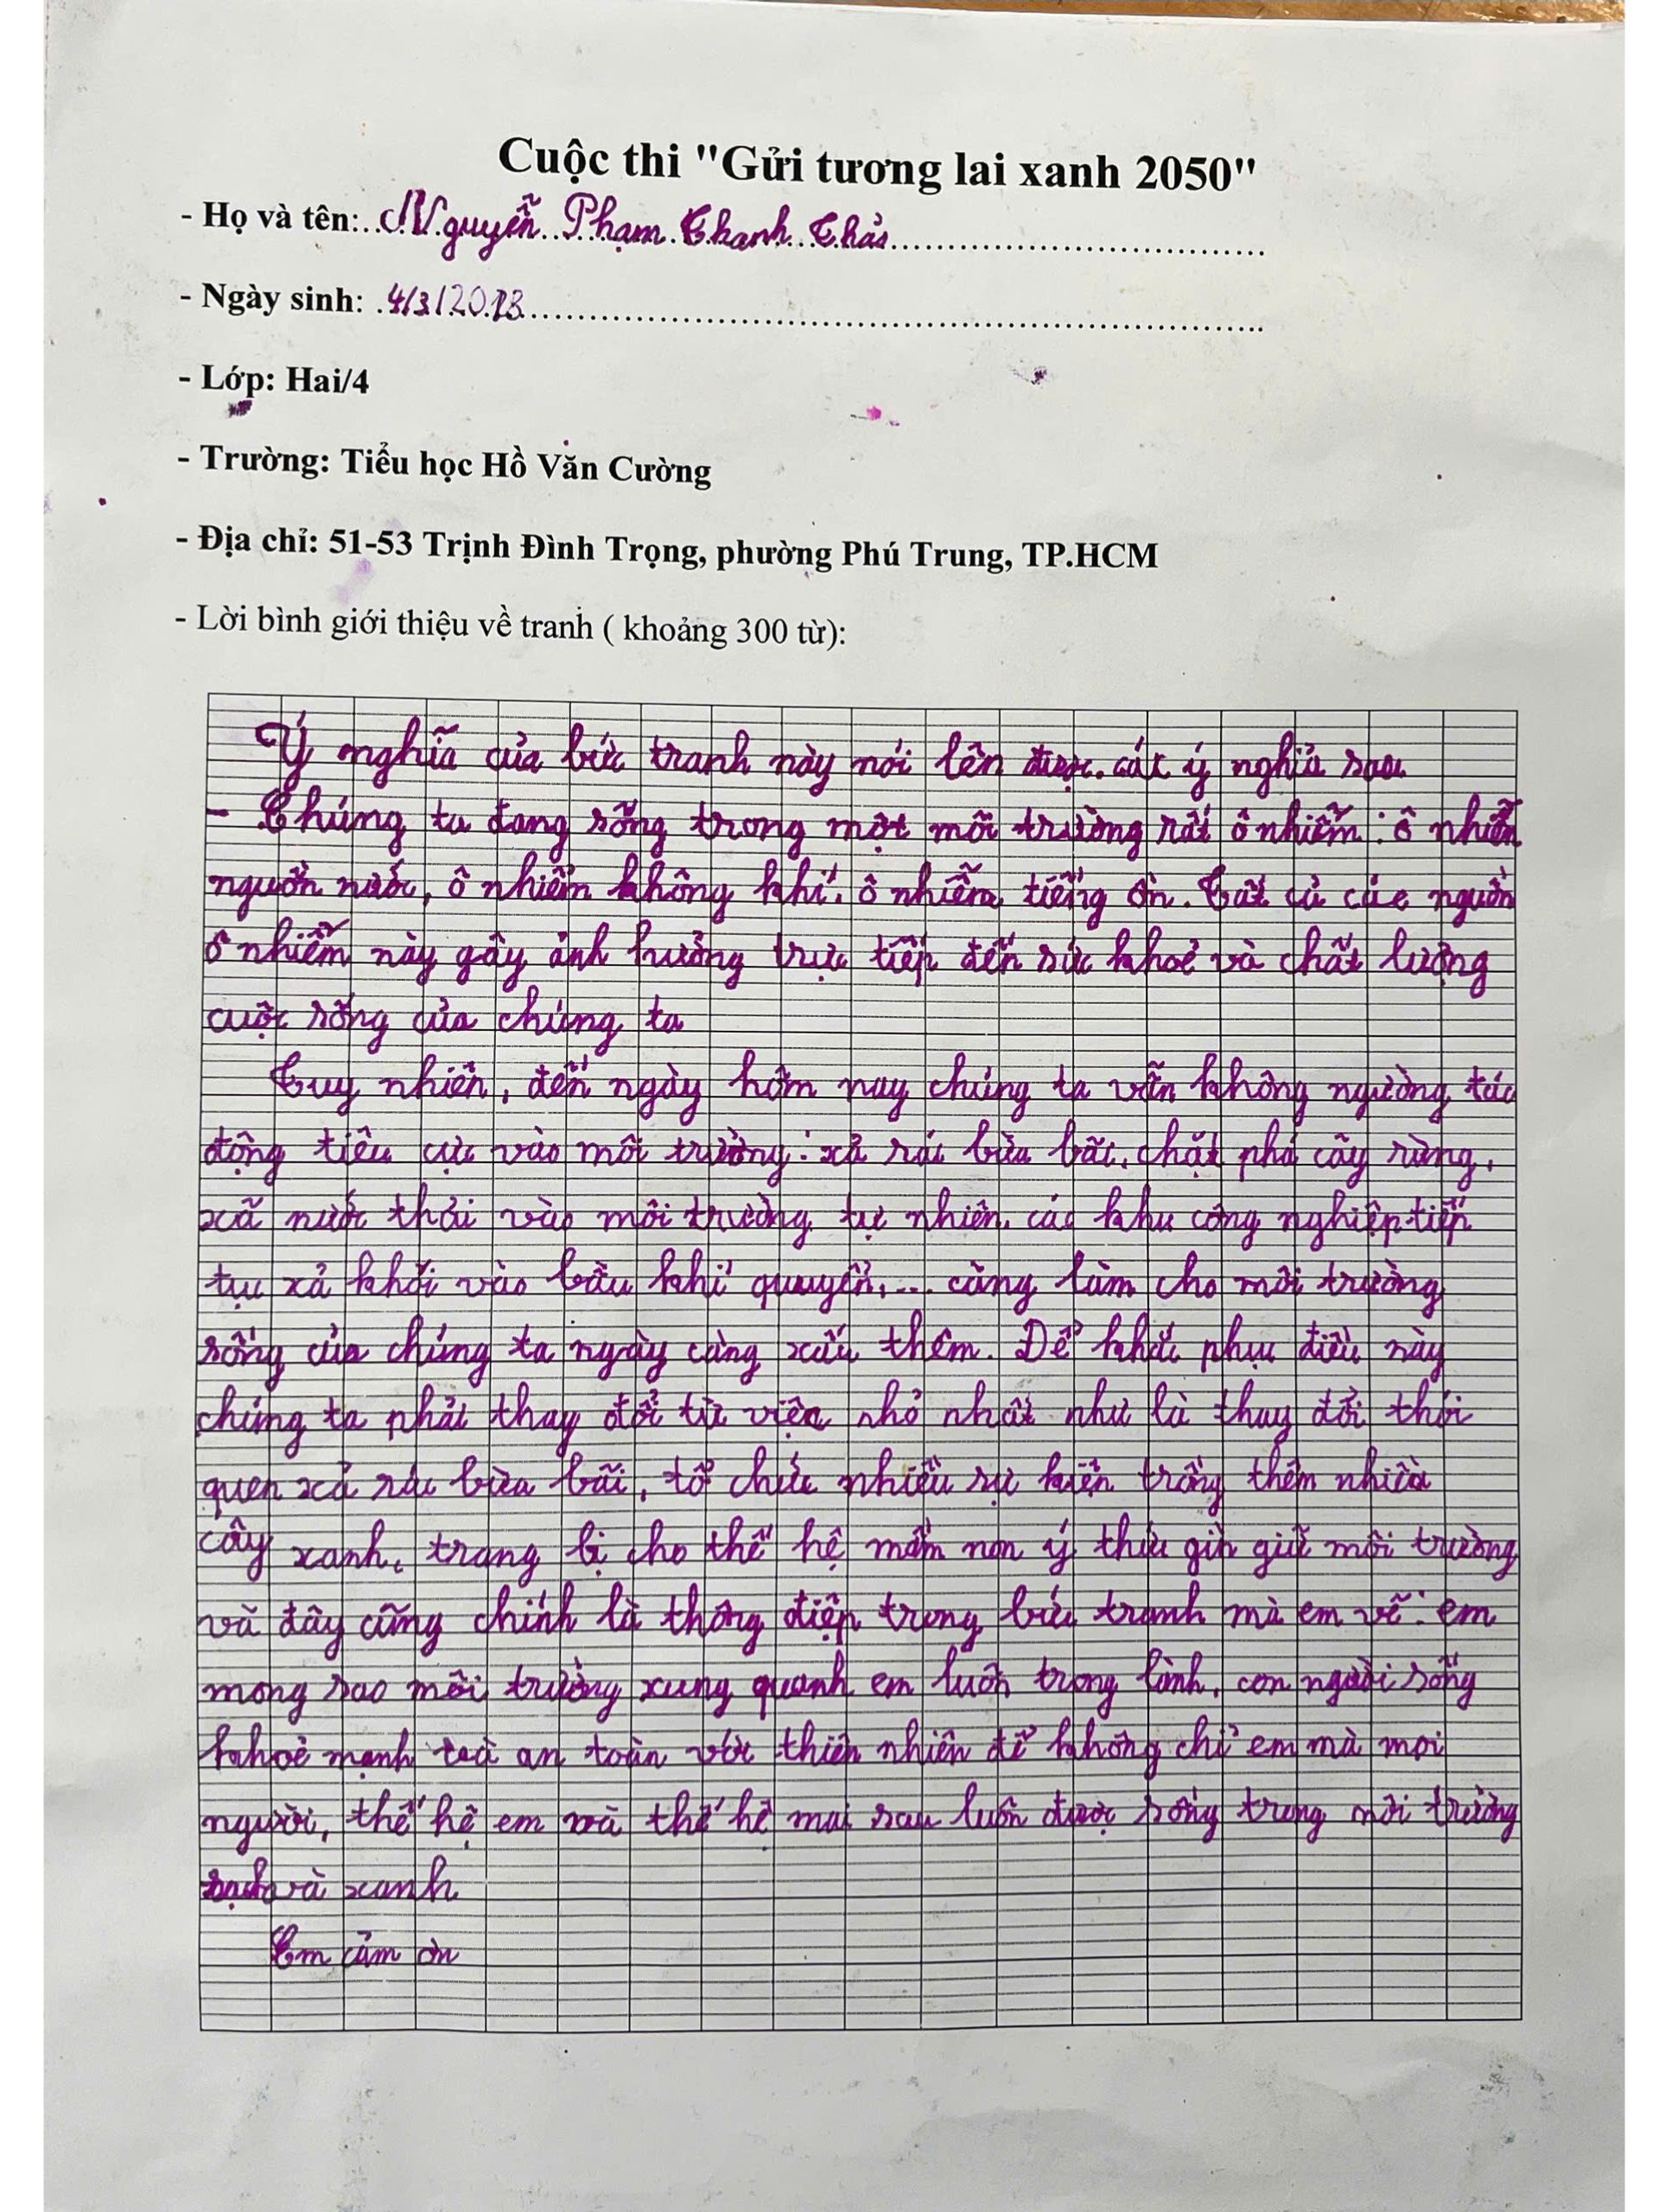 Cuộc thi "Gửi tương lai xanh 2050"
- Họ và tên: Nguyễn Phạm Thanh Thảo
- Ngày sinh: 4/3/2013
- Lớp: Hai/4
- Trường: Tiểu học Hồ Văn Cường
- Địa chỉ: 51-53 Trịnh Đình Trọng, phường Phú Trung, TP.HCM
- Lời bình giới thiệu về tranh ( khoảng 300 từ):
Ý nghĩa của bức tranh này nói lên được các ý nghĩa sau
- Chúng ta đang sống trong một môi trường rất ô nhiễm: ô nhiễm
nguồn nước, ô nhiễm không khí, ô nhiễm tiếng ồn. Tất cả các nguồn
ô nhiễm này gây ảnh hưởng trực tiếp đến sức khoẻ và chất lượng
cuộc sống của chúng ta
Tuy nhiên, đến ngày hôm nay chúng ta vẫn không ngường tác
động tiêu cực vào môi trường: xả rác bừa bãi, chặt phá cây rừng,
xã nước thải vào môi trường tự nhiên, các khu công nghiệp tiếp
tục xả khói vào bầu khí quuyển,... càng làm cho môi trường
sống của chúng ta ngày càng xấu thêm. Để khắc phục điều này
chúng ta phải thay đổi từ việc nhỏ nhất như là thay đổi thói
quen xả rác bừa bãi, tổ chức nhiều sự kiện trồng thêm nhiều
cây xanh, trang bị cho thế hệ mầm non ý thức gìn giữ môi trường
và đây cũng chính là thông điệp trong bức tranh mà em vẽ: em
mong sao môi trường xung quanh em luôn trong lành, con người sống
khoẻ mạnh và an toàn với thiên nhiên để không chỉ em mà mọi
người, thế hệ em và thế hệ mai sau luôn được sống trong môi trường
sạch và xanh
Em cảm ơn